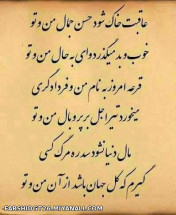 عاقبت خاک شود حسن جمال من و تو
خوب و بد میگذرد وای به حال من و تو
قرعه امروز به نام من و فردا دگری
میخورد تیر اجل بر پر و بال من و تو
مال دنیا نشود سد ره مرگ کسی
گیرم که کل جهان باشد از آن من و تو
FARSHID6726.MIYANALI.COM